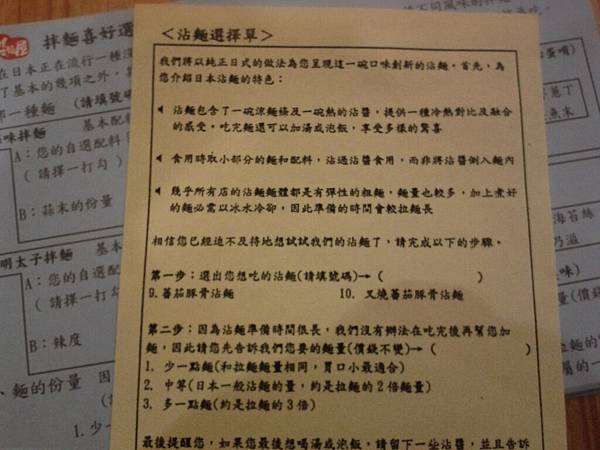 ＜沾麵選擇單＞
我們將以純正日式的做法為您呈現這一碗口味創新的沾麵。首先，為
您介紹日本沾麵的特色：
沾麵包含了一碗涼麵條及一碗熱的沾醬，提供一種冷熱對比及融合
的感受。吃完麵還可以加湯或泡飯，享受多樣的驚喜
食用時取小部分的麵和配料，沾過沾醬食用，而非將沾醬倒入麵內
幾乎所有店的沾麵麵體都是有彈性的粗麵，麵量也較多。加上煮好
的麵必需以冰水冷卻，因此準備的時間會較拉麵長
相信您已經迫不及待地想試試我們的沾麵了，請完成以下的步驟。
第一步：選出您想吃的沾麵(請填號碼)→ ( )
9.蕃茄豚骨沾麵 10. 叉燒蕃茄豚骨沾麵
第二步：因為沾麵準備時間很長，我們沒有辦法在吃完後再幫您加
麵，因此請您先告訴我們您要的麵量(價錢不變)→ ( )
1. 少一點麵(和拉麵麵量相同，胃口小最適合)
2. 中等(日本一般沾麵的量，約是拉麵的 2 倍麵量)
3. 多一點麵(約是拉麵的 3 倍)
最後提醒您，如果您最後想喝湯或泡飯，請留下一些沾醬，並且告訴
拌麵喜好選
在日本正在流行一種沒
了基本的幾項之外，
部一種麵 (請填號碼
味拌麵 基本配料
A：您的自選配料
( 請擇一打勾 )
B：蒜末的份量
明太子拌麵 基本
A：您的自選配
( 請擇一打勾
B：辣度
、麵的份量 因
1. 少一
不同風味的拌麵
蛋唷)
蔥丁
魚末
海苔絲
乃滋
味)
量(價錢